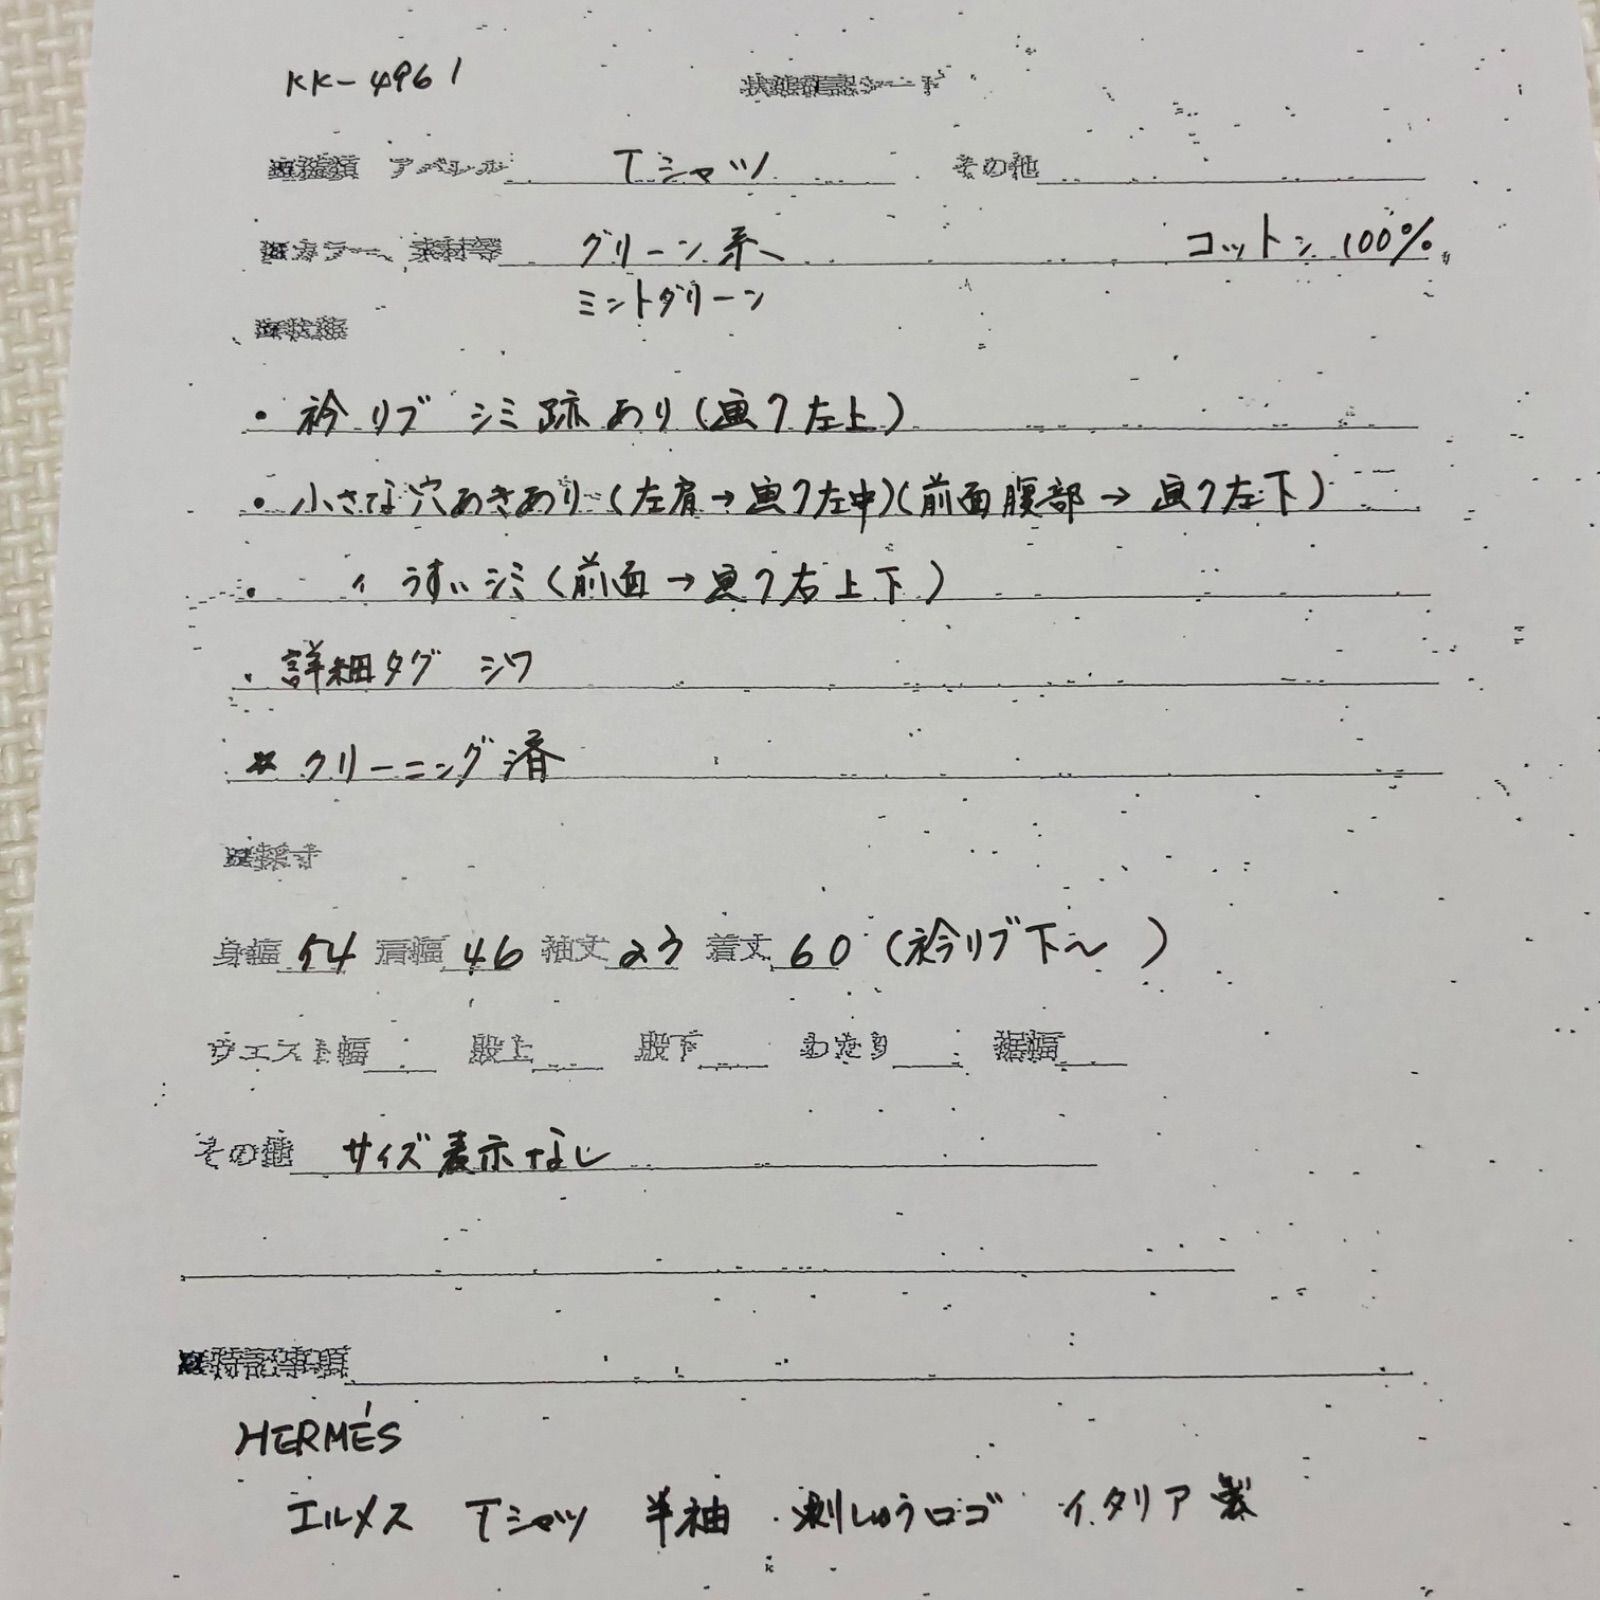 KK-4961
状態確認シート
■種類 アパレル Tシャツ その他
■カラー、素材等 グリーン系、 コットン 100%
ミントグリーン
■状態
・衿リブ シミ跡あり(画7左上)
・小さな穴あきあり(左肩→画7左中)(前面腹部→画7左下)
・ 〃 うすいシミ(前面→画7右上下)
・詳細タグ シワ
* クリーニング済
■採寸
身幅 54 肩幅 46 袖丈 23 着丈 60 (衿リブ下〜 )
ウエスト幅 股上 股下 わたり 裾幅
その他 サイズ表示なし
■特記事項
HERMÉS
エルメス Tシャツ 半袖 刺しゅうロゴ イタリア製